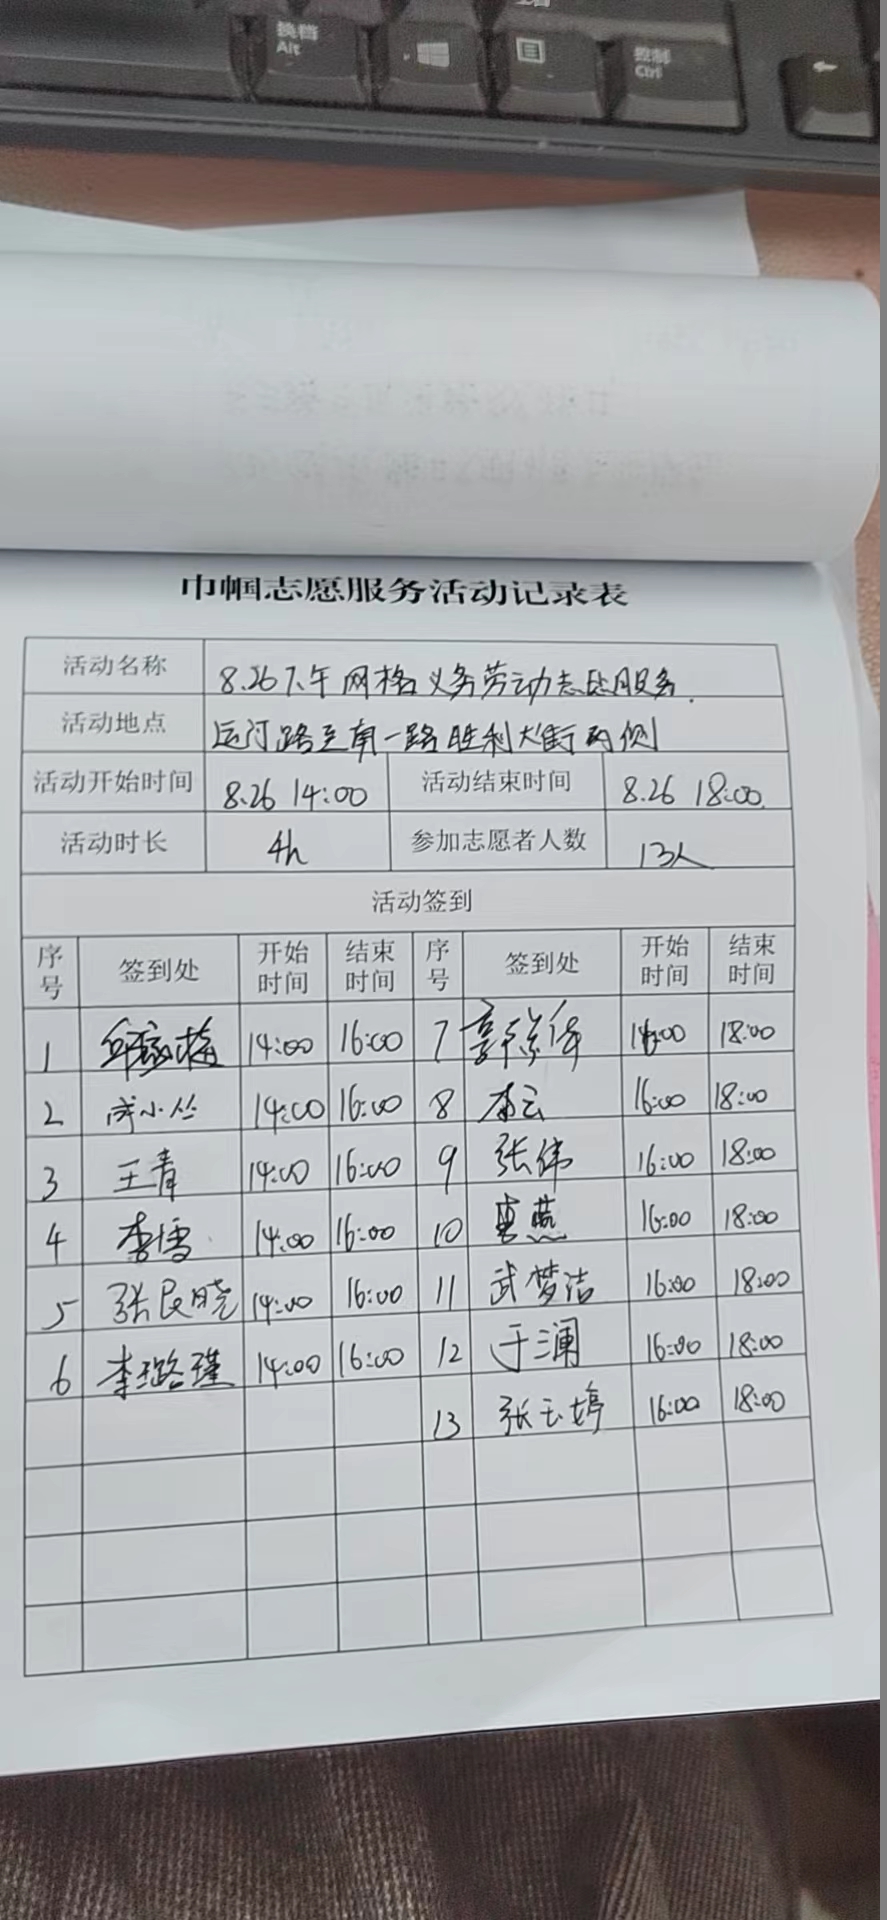 换档
Alt
控制
Ctrl
巾帼志愿服务活动记录表
活动名称 8.26下午网格义务劳动志愿服务.
活动地点 运河路至南一路胜利大街两侧
活动开始时间 8.26 14:00 活动结束时间 8.26 18:00.
活动时长 4h 参加志愿者人数 13人
活动签到
序号 签到处 开始时间 结束时间 序号 签到处 开始时间 结束时间
1 14:00 16:00 7 14:00 18:00
2 小丛 14:00 16:00 8 李云 16:00 18:00
3 王青 14:00 16:00 9 张伟 16:00 18:00
4 李雪 14:00 16:00 10 燕 16:00 18:00
5 张民晓 14:00 16:00 11 武梦洁 16:00 18:00
6 李璐瑾 14:00 16:00 12 于澜 16:00 18:00
13 张玉婷 16:00 18:00